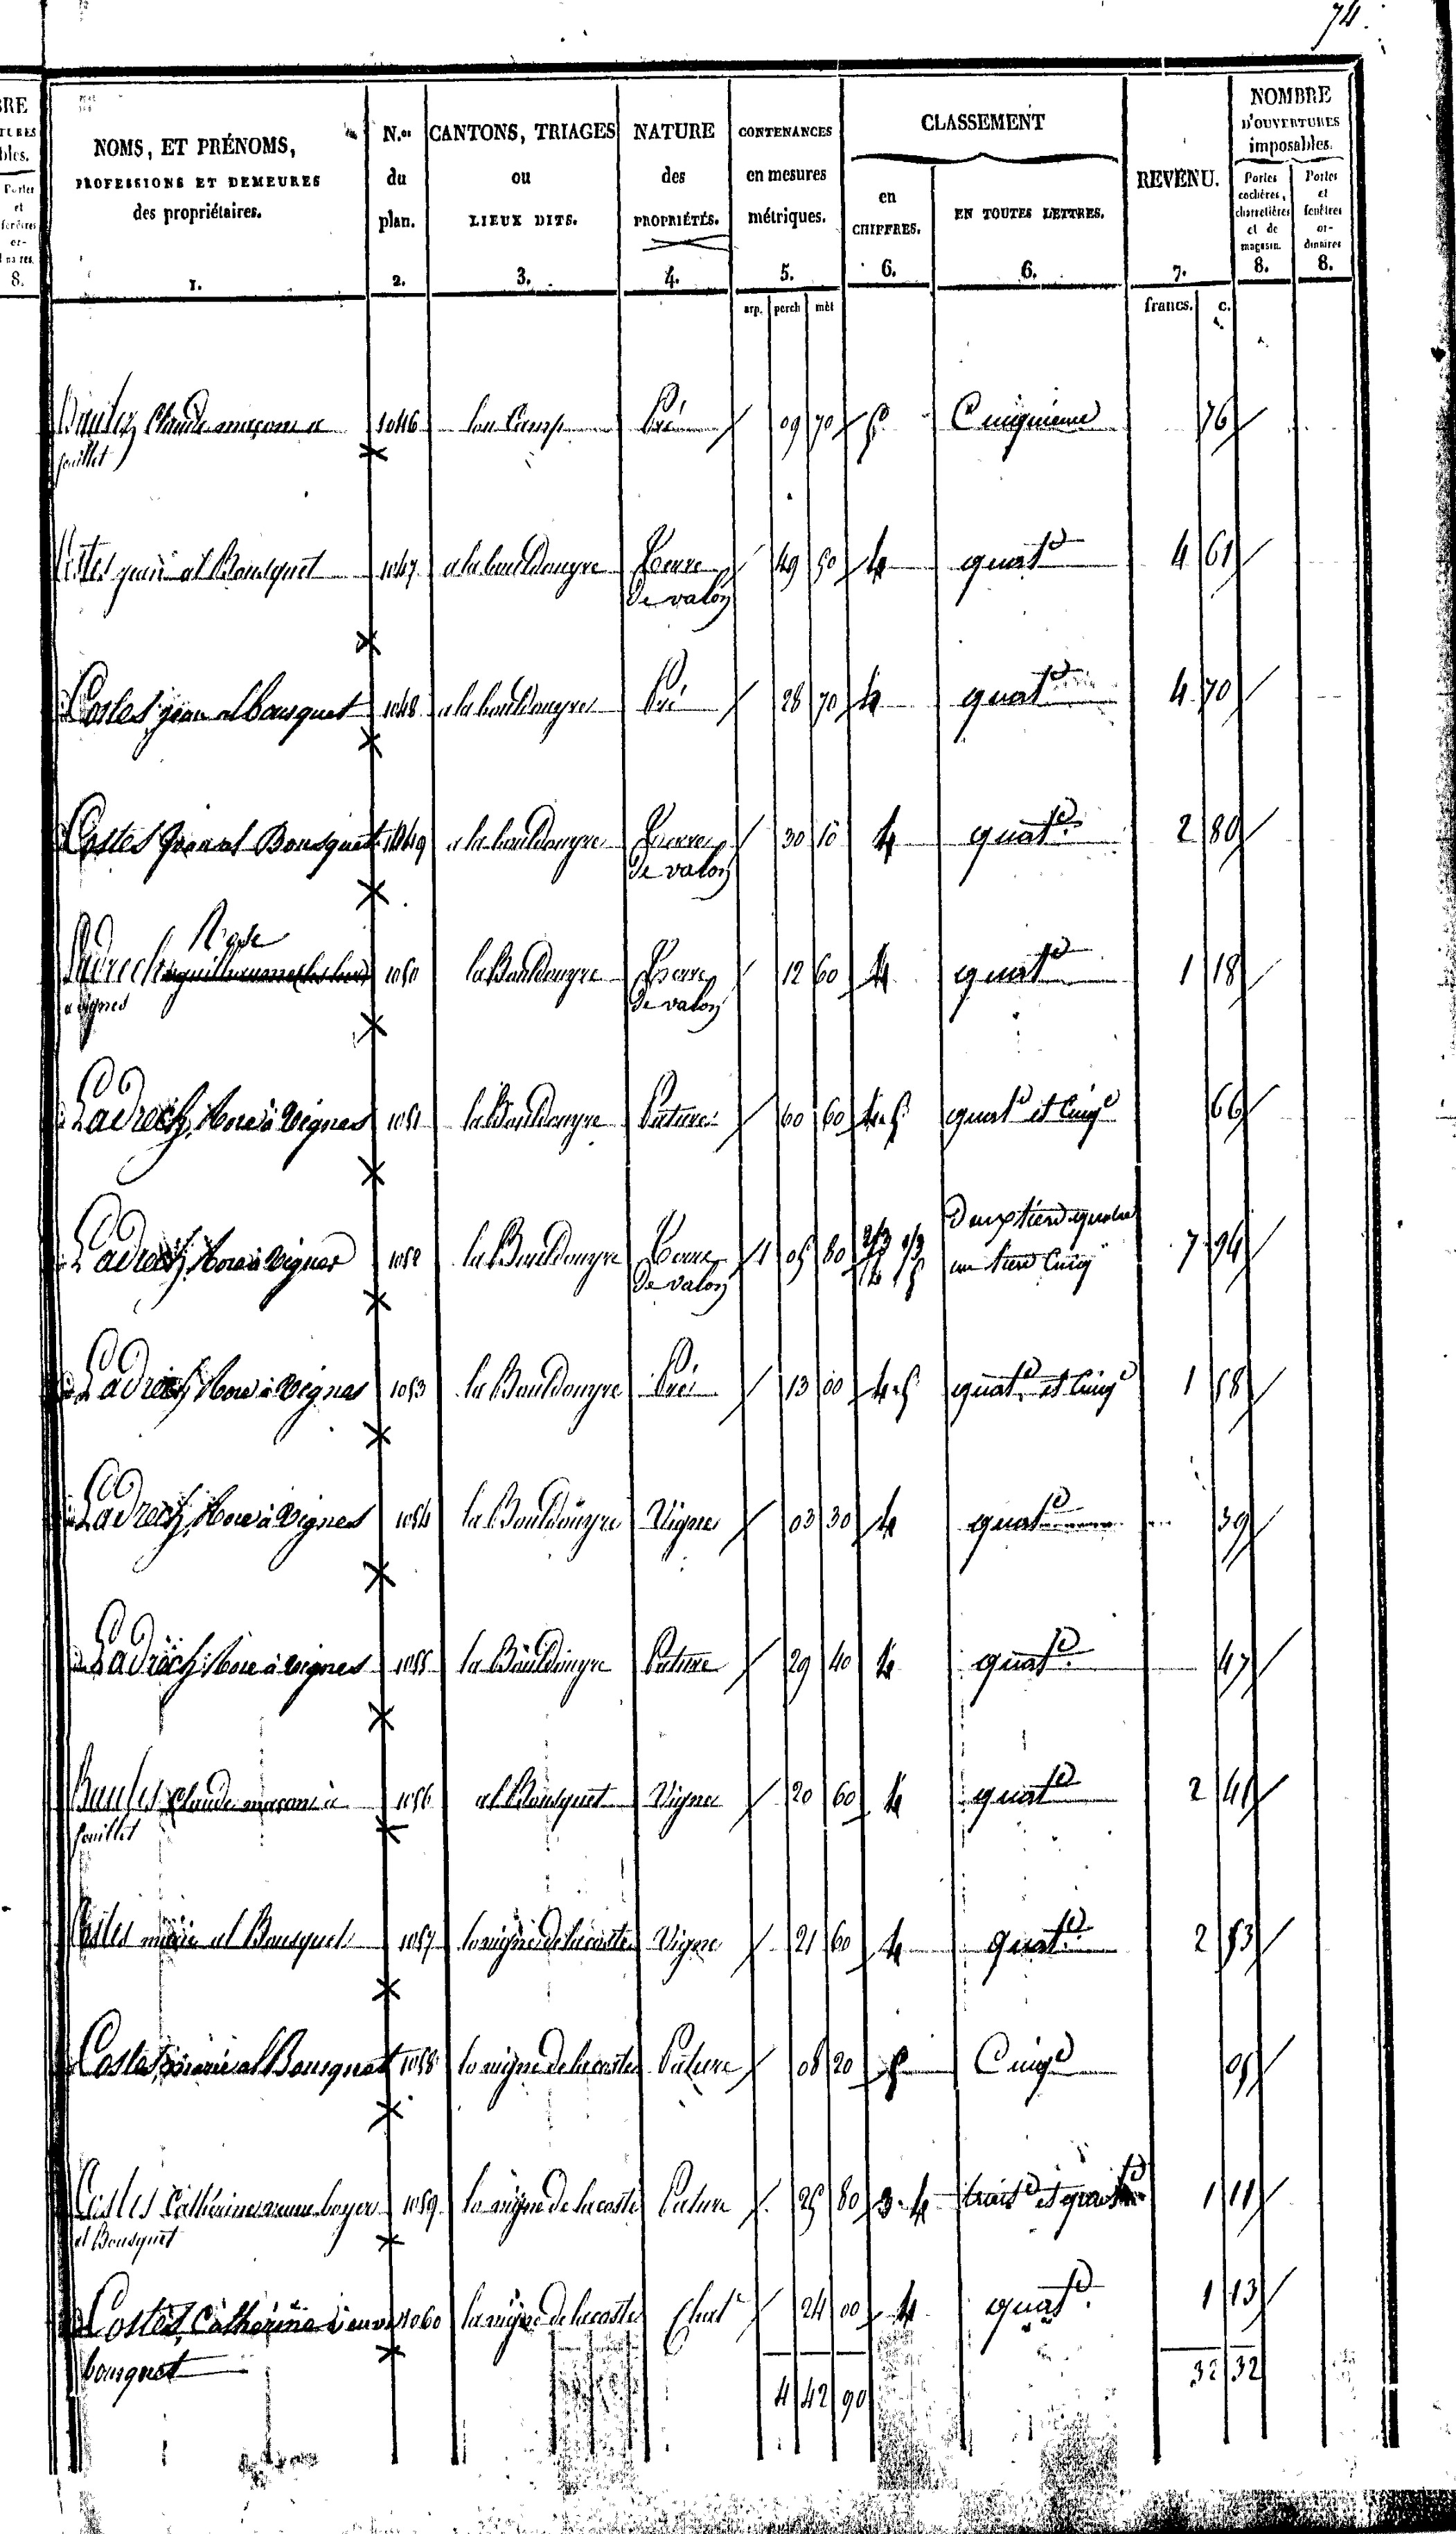 74.
NOMS, ET PRÉNOMS,
PROFESSIONS ET DEMEURES
des propriétaires.
1.
N.os
du
plan.
2.
CANTONS, TRIAGES
ou
LIEUX DITS.
3.
NATURE
des
PROPRIÉTÉS.
4.
CONTENANCES
en mesures
métriques.
5.
arp. perch mèt
CLASSEMENT
en
CHIFFRES.
6.
EN TOUTES LETTRES.
6.
REVENU.
7.
francs. c.
NOMBRE
D'OUVERTURES
imposables.
Portes
cochères,
charretières
et de
magasin.
8.
Portes
et
fenêtres
or-
dinaires
8.
Claude maçon a 1046 Pré 09 70 5 Cinquieme 76
fouillet
Costes jean al Bousquet 1047 a la bouldouyre Terre 49 50 4 quat.e 4 61
de valon
Costes jean al bousquet 1048 a la bouldouyre Pré 28 70 4 quat.e 4 70
Costes jean al Bousquet 1049 a la bouldouyre Terre 30 10 4 quat.e 2 80
de valon
Rose
Ladrech 1050 la Bouldouyre Terre 12 60 4 quat.e 1 18
a vignes de valon
Ladrech Rose à Vignes 1051 la Bouldouyre Pature 60 60 4.5 quat.e et Cinq.e 66
Ladrech Rose à Vignes 1052 la Bouldouyre Terre 1 05 80 2/3 1/3 Deux tiers quatre 7 94
de valon 4 5 un tiers Cinq
Ladrech Rose à Vignes 1053 la Bouldouyre Pré 13 00 4.5 quat.e et Cinq.e 1 58
Ladrech Rose à Vignes 1054 la Bouldouyre Vigne 03 30 4 quat.e 39
Ladrech Rose à Vignes 1055 la Bouldouyre Pature 29 40 4 quat.e 47
Claude maçon à 1056 al Bousquet Vigne 20 60 4 quat.e 2 41
fouillet
Costes marie al Bousquet 1057 la vigne de la coste Vigne 21 60 4 quat.e 2 53
Costes marie al Bousquet 1058 la vigne de la coste Pature 08 20 5 Cinq.e 05
Costes Catherine veuve boyer 1059 la vigne de la coste Pature 25 80 3.4 trois.e et quat.e 1 11
al Bousquet
Costes, Catherine veuve 1060 la vigne de la coste Chat.e 24 00 4 quat.e 1 13
bousquet
4 42 90 32 32